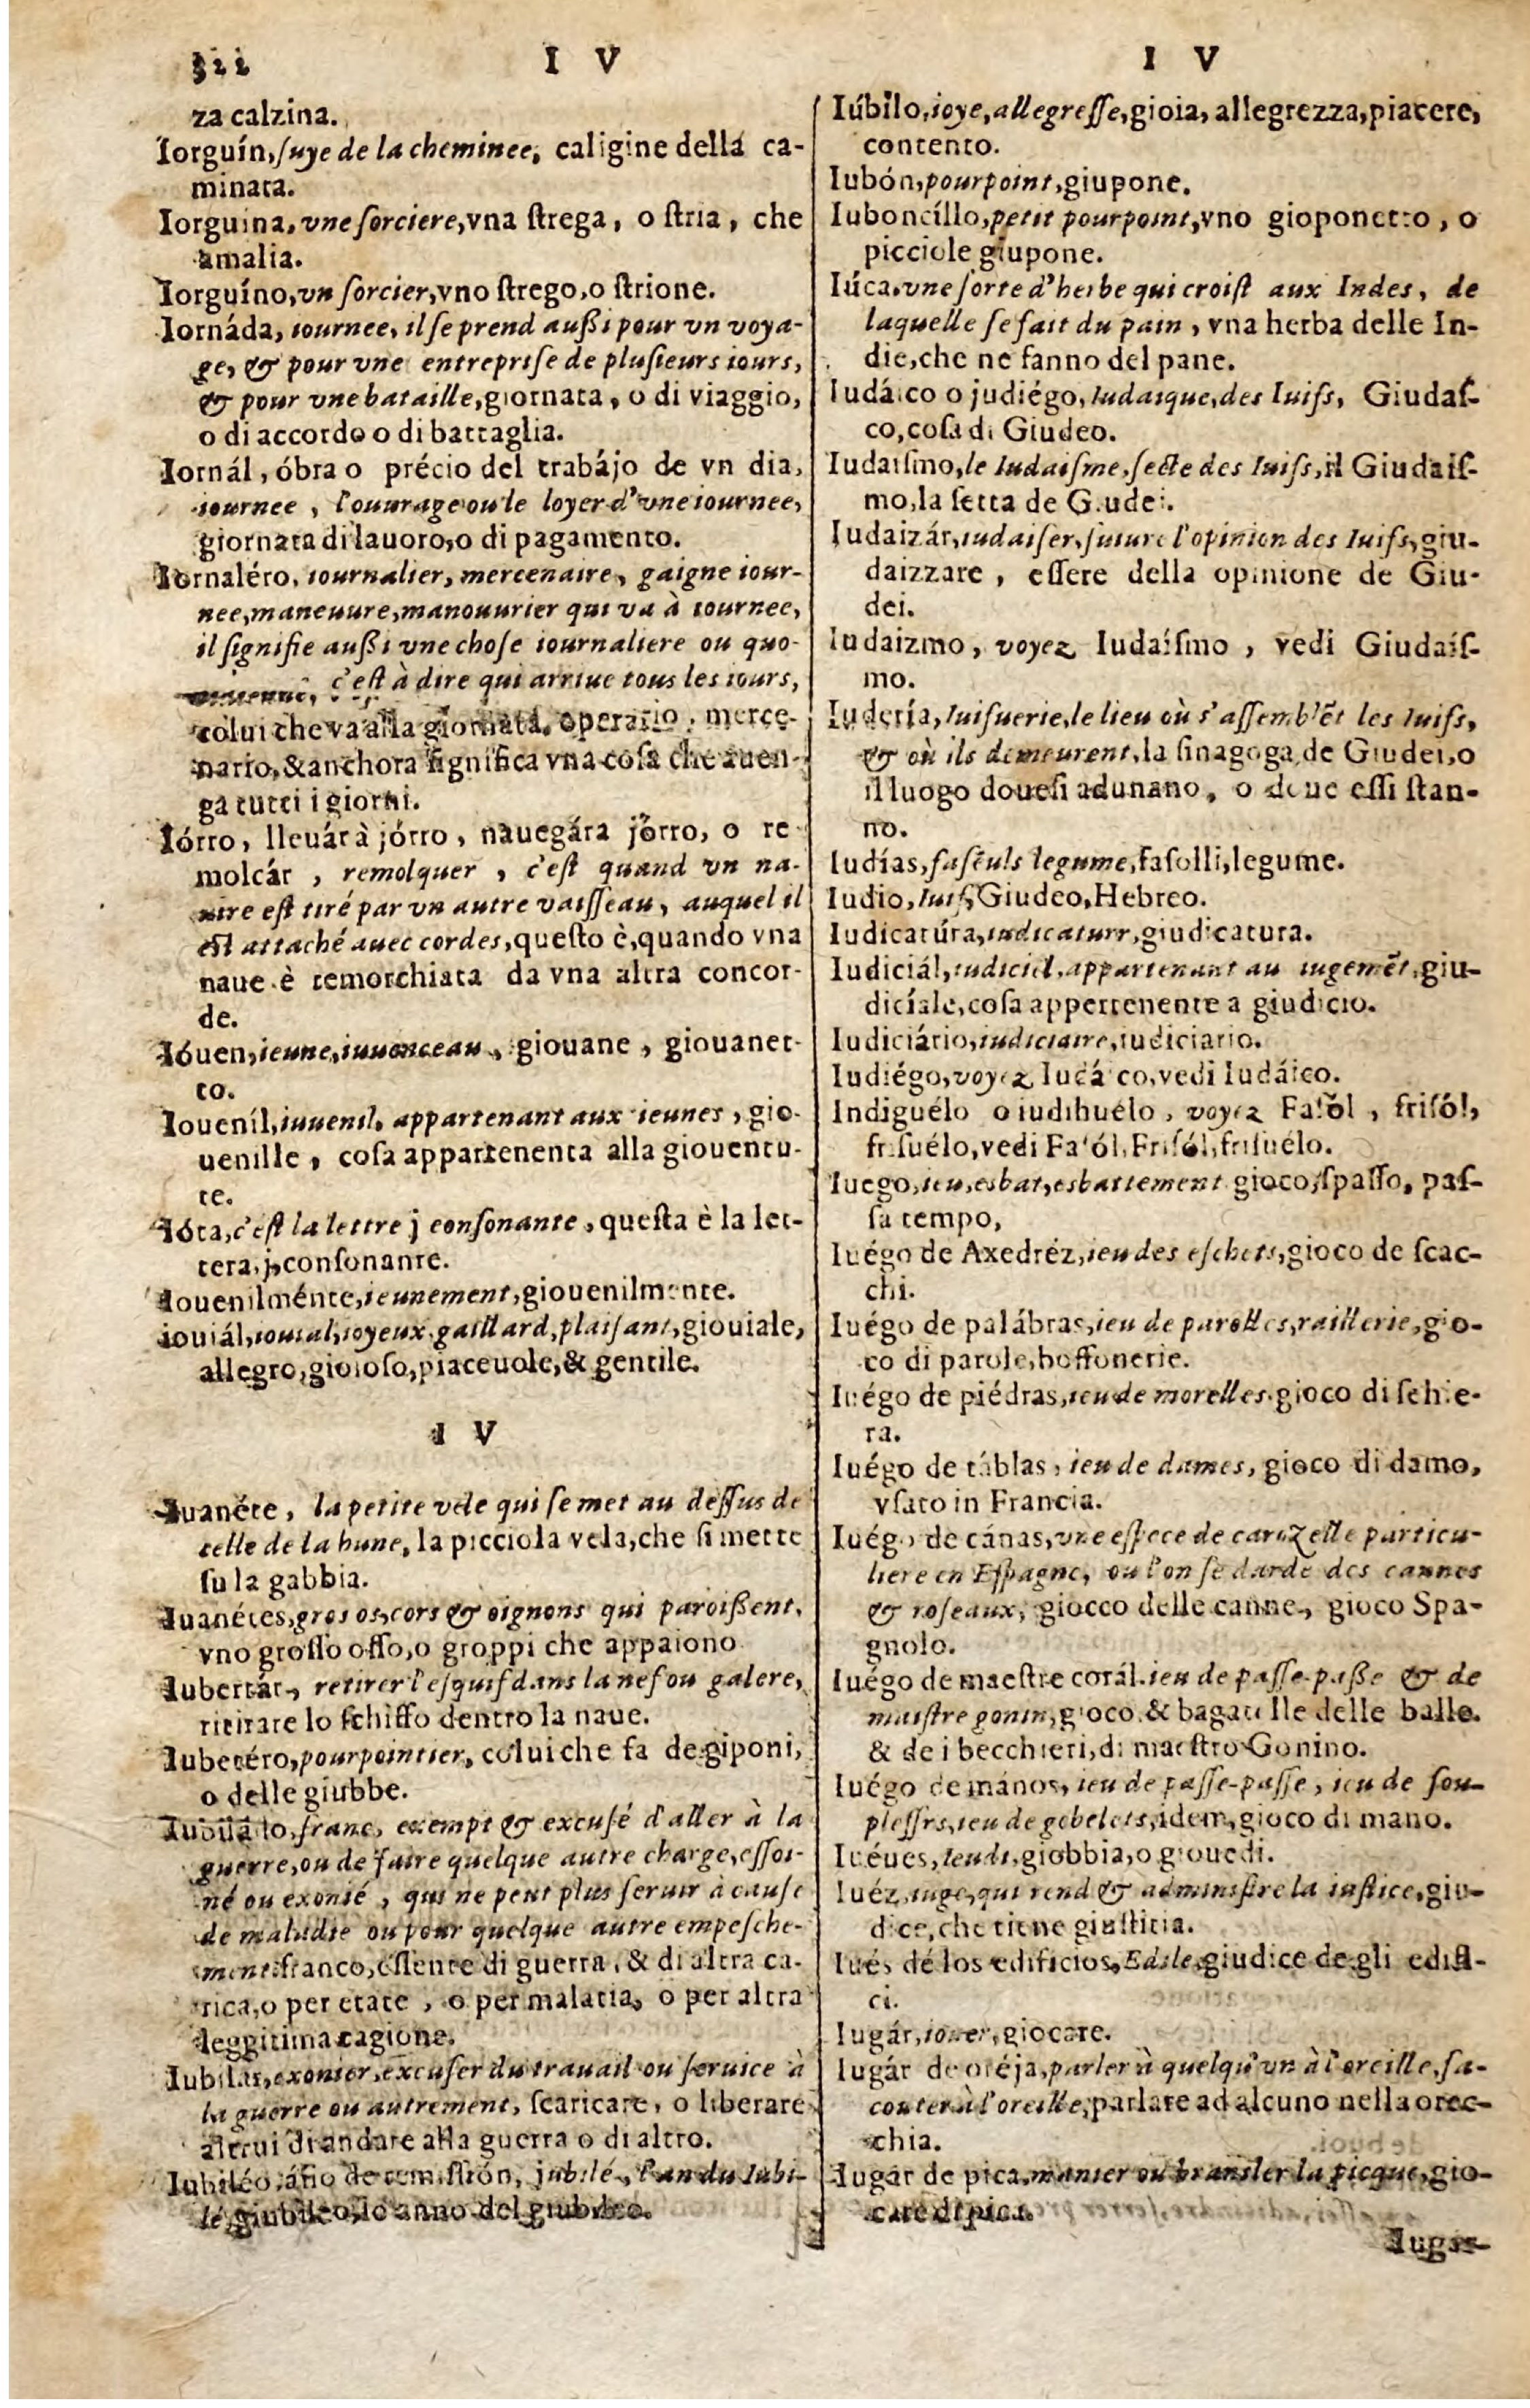 I V
za calzina.
Iorguín, suye de la cheminee, caligine della ca-
minata.
Iorguina, vne sorciere, vna strega, o stria, che
amalia.
Iorguíno, vn sorcier, vno strego, o strione.
Iornáda, iournee, il se prend außi pour vn voya-
ge, & pour vne entreprise de plusieurs iours,
& pour vne bataille, giornata, o di viaggio,
o di accordo o di battaglia.
Iornál, óbra o précio del trabájo de vn dia,
iournee, l'ouurage ou le loyer d'vne iournee,
giornata di lauoro, o di pagamento.
Iornaléro, iournalier, mercenaire, gaigne iour-
nee, maneuure, manouurier qui va à iournee,
il signifie außi vne chose iournaliere ou quo-
c'est à dire qui arriue tous les iours,
colui che va alla giornata, operario, merce-
nario, & anchora significa vna cosa che auen-
ga tutti i giorni.
Iórro, lleuár à jórro, nauegár a jórro, o re-
molcár, remolquer, c'est quand vn na-
uire est tiré par vn autre vaisseau, auquel il
est attaché auec cordes, questo è, quando vna
naue è remorchiata da vna altra con cor-
de.
Ióuen, ieune, iuuenceau, giouane, giouanet-
to.
Ioueníl, iuuenil, appartenant aux ieunes, gio-
uenille, cosa appartenenta alla giouentu-
te.
Ióta, c'est la lettre j consonante, questa è la let-
tera, j, consonante.
Iouenilménte, ieunement, giouenilmente.
iouiál, iouial, ioyeux, gaillard, plaisant, giouiale,
allegro, gioioso, piaceuole, & gentile.
I V
Iuanéte, la petite vele qui se met au dessus de
celle de la hune, la picciola vela, che si mette
su la gabbia.
Iuanétes, gros os, cors & oignons qui paroißent,
vno grosso osso, o groppi che appaiono
Iubertár, retirer l'esquif dans la nef ou galere,
ritirare lo schiffo dentro la naue.
Iubetéro, pourpointier, colui che fa de giponi,
o delle giubbe.
Iubiládo, franc, exempt & excusé d'aller à la
guerre, ou de faire quelque autre charge, essoi-
né ou exonié, qui ne peut plus seruir à cause
de maladie ou pour quelque autre empesche-
ment: franco, essente di guerra, & di altra ca-
rica, o per etate, o per malatia, o per altra
leggitima cagione.
Iubilár, exonier, excuser du trauail ou seruice à
la guerre ou autrement, scaricare, o liberare
altrui di andare alla guerra o di altro.
Iubiléo, áño de remissión, jubilé, l'an du Iubi-
lé, giubileo, lo anno del giubileo.
I V
Iúbilo, ioye, allegresse, gioia, allegrezza, piacere,
contento.
Iubón, pourpoint, giupone.
Iuboncíllo, petit pourpoint, vno gioponetto, o
picciole giupone.
Iúca, vne sorte d'herbe qui croist aux Indes, de
laquelle se fait du pain, vna herba delle In-
die, che ne fanno del pane.
Iudáico o judiégo, Iudaique, des Iuifs, Giudas-
co, cosa di Giudeo.
Iudaismo, le Iudaisme, secte des Iuifs, il Giudais-
mo, la setta de Giudei.
Iudaizár, iudaiser, suiure l'opinion des Iuifs, giu-
daizzare, essere della opinione de Giu-
dei.
Iudaizmo, voyez Iudaísmo, vedi Giudaís-
mo.
Iudería, Iuifuerie, le lieu où s'assemblẽt les Iuifs,
& où ils demeurent, la sinagoga de Giudei, o
il luogo doue si adunano, o doue essi stan-
no.
Iudías, faséuls legume, fasolli, legume.
Iudio, Iuif, Giudeo, Hebreo.
Iudicatúra, iudicaturr, giudicatura.
Iudiciál, iudiciel, appartenant au iugemẽt, giu-
diciale, cosa appertenente a giudicio.
Iudiciário, iudiciaire, iudiciario.
Iudiégo, voyez Iudáico, vedi Iudáico.
Indiguélo o iudihuélo, voyez Fasól, frisól,
frisuélo, vedi Fasól, Frisól, frisuélo.
Iuego, ieu, esbat, esbattement gioco, spasso, pas-
sa tempo,
Iuégo de Axedréz, ieu des eschets, gioco de scac-
chi.
Iuégo de palábras, ieu de parolles, raillerie, gio-
co di parole, boffonerie.
Iuégo de piédras, ieu de morelles, gioco di schie-
ra.
Iuégo de táblas, ieu de dames, gioco di damo,
vsato in Francia.
Iuégo de cánas, vne espece de carozelle particu-
liere en Espagne, ou l'on se darde des cannes
& roseaux, giocco delle canne, gioco Spa-
gnolo.
Iuégo de maestre corál, ieu de passe-paße & de
maistre gonin, gioco, & bagatelle delle balle.
& de i becchieri, di maestro Gonino.
Iuégo de mános, ieu de passe-passe, ieu de sou-
plessrs, ieu de gobelets, idem, gioco di mano.
Iuéues, Ieudi, giobbia, o giouedi.
Iuéz, iuge, qui rend & administre la iustice, giu-
dice, che tiene giustitia.
Iués dé los edificios, Edile, giudice degli edifi-
ci.
Iugár, iouer, giocare.
Iugár de oréja, parler à quelqu'vn à l'oreille, sa-
conter à l'oreille, parlare ad alcuno nella orec-
chia.
Iugár de pica, manier ou bransler la picque, gio-
care di pica.
Iugar-